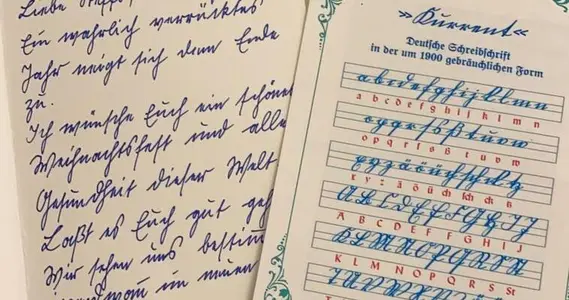 Liebe
Ein wahrlich verrücktes
Jahr neigt sich dem Ende
zu.
Ich wünsche Euch ein schönes
Weihnachtsfest und alle
Gesundheit dieser Welt
Laßt es Euch gut geh
Wir sehen uns bestim
im neuen
»Kurrent«
Deutsche Schreibschrift
in der um 1900 gebräuchlichen Form
a b c d e f g h i j k l m n
a b c d e f g h i j k l m n
o p q r s ſ ß t u v w
o p q r ſ s ß t u v w
x y z ä ö ü ch ſch ck tz
x y z ä ö ü ch ſch ck tz
A B C D E F G H I J
A B C D E F G H I J
K L M N O P Q R S St
K L M N O P Q R S St
T U V W X